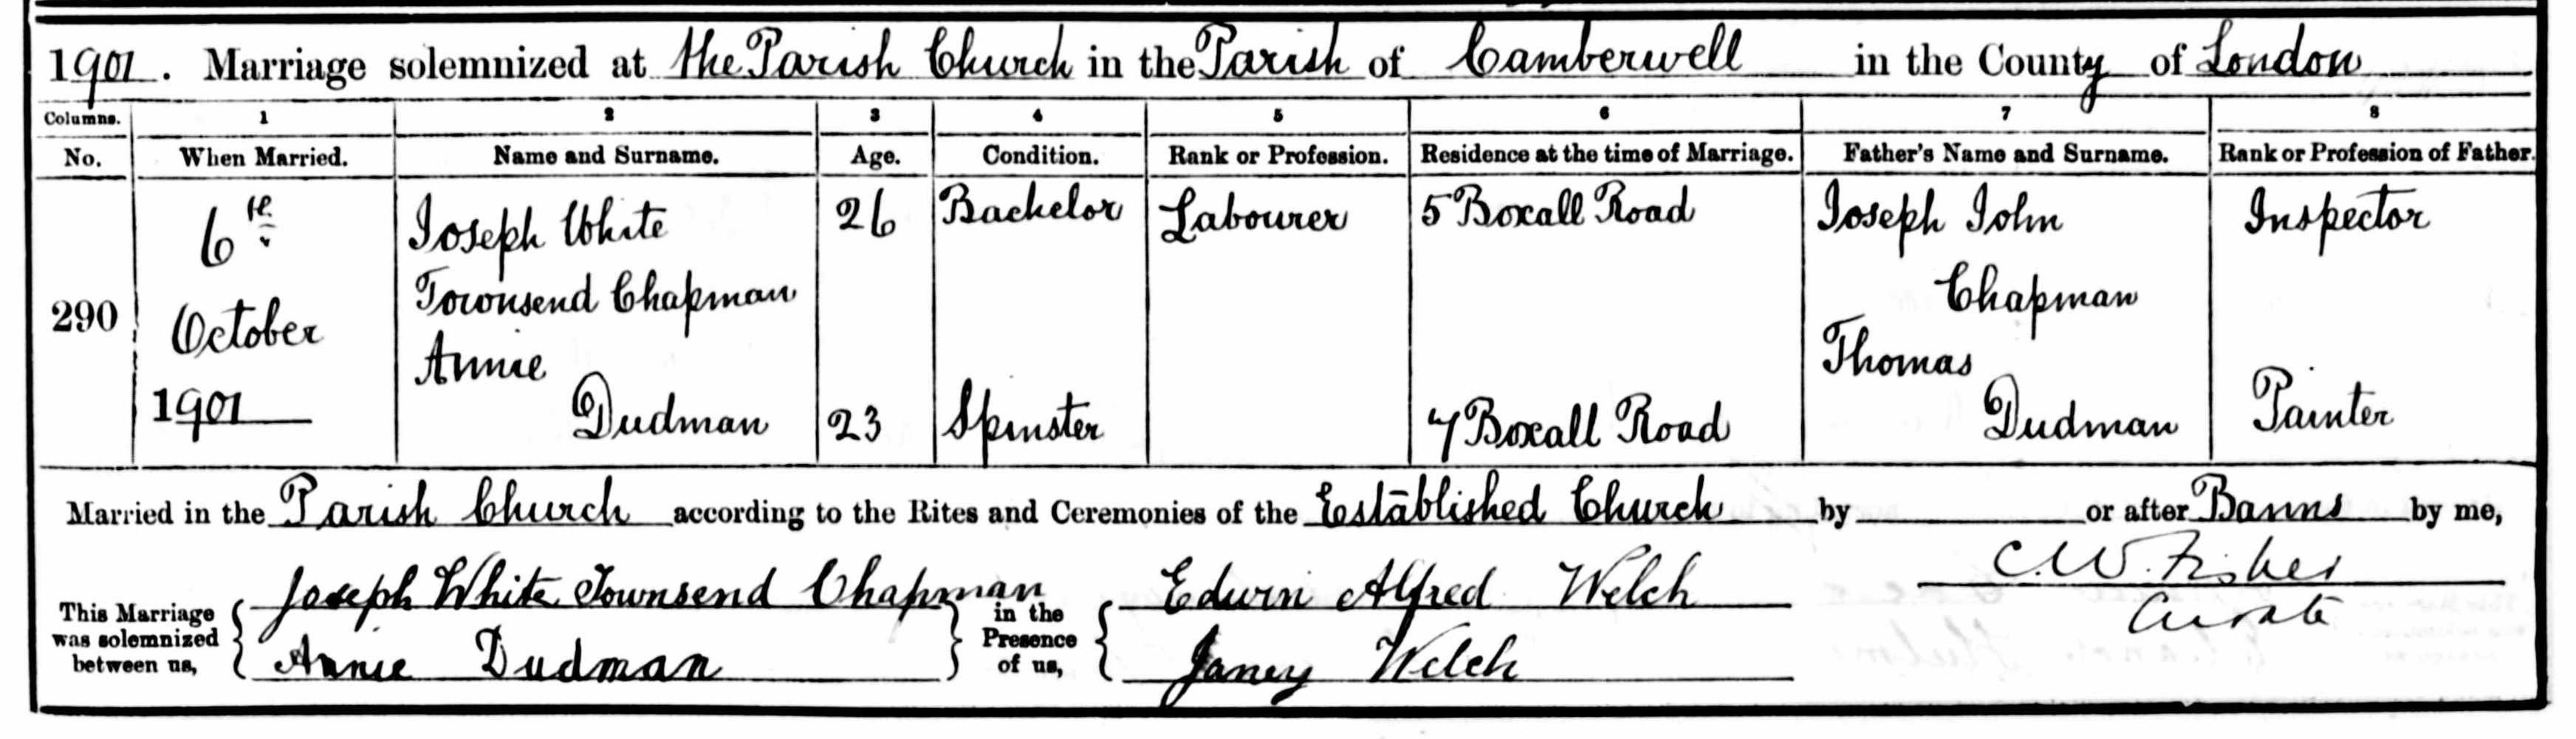 1901. Marriage solemnized at the Parish Church in the Parish of Camberwell in the County of London
Columns. 1 2 3 4 5 6 7 8
No. When Married. Name and Surname. Age. Condition. Rank or Profession. Residence at the time of Marriage. Father's Name and Surname. Rank or Profession of Father.
6th Joseph White 26 Bachelor Labourer 5 Boxall Road Joseph John Inspector
Townsend Chapman Chapman
290 October Annie Thomas
1901 Dudman 23 Spinster 7 Boxall Road Dudman Painter
Married in the Parish Church according to the Rites and Ceremonies of the Established Church by or after Banns by me,
Joseph White Townsend Chapman Edwin Alfred Welch C.W. Fisher
This Marriage was solemnized between us, in the Presence of us, Curate
Annie Dudman Janey Welch